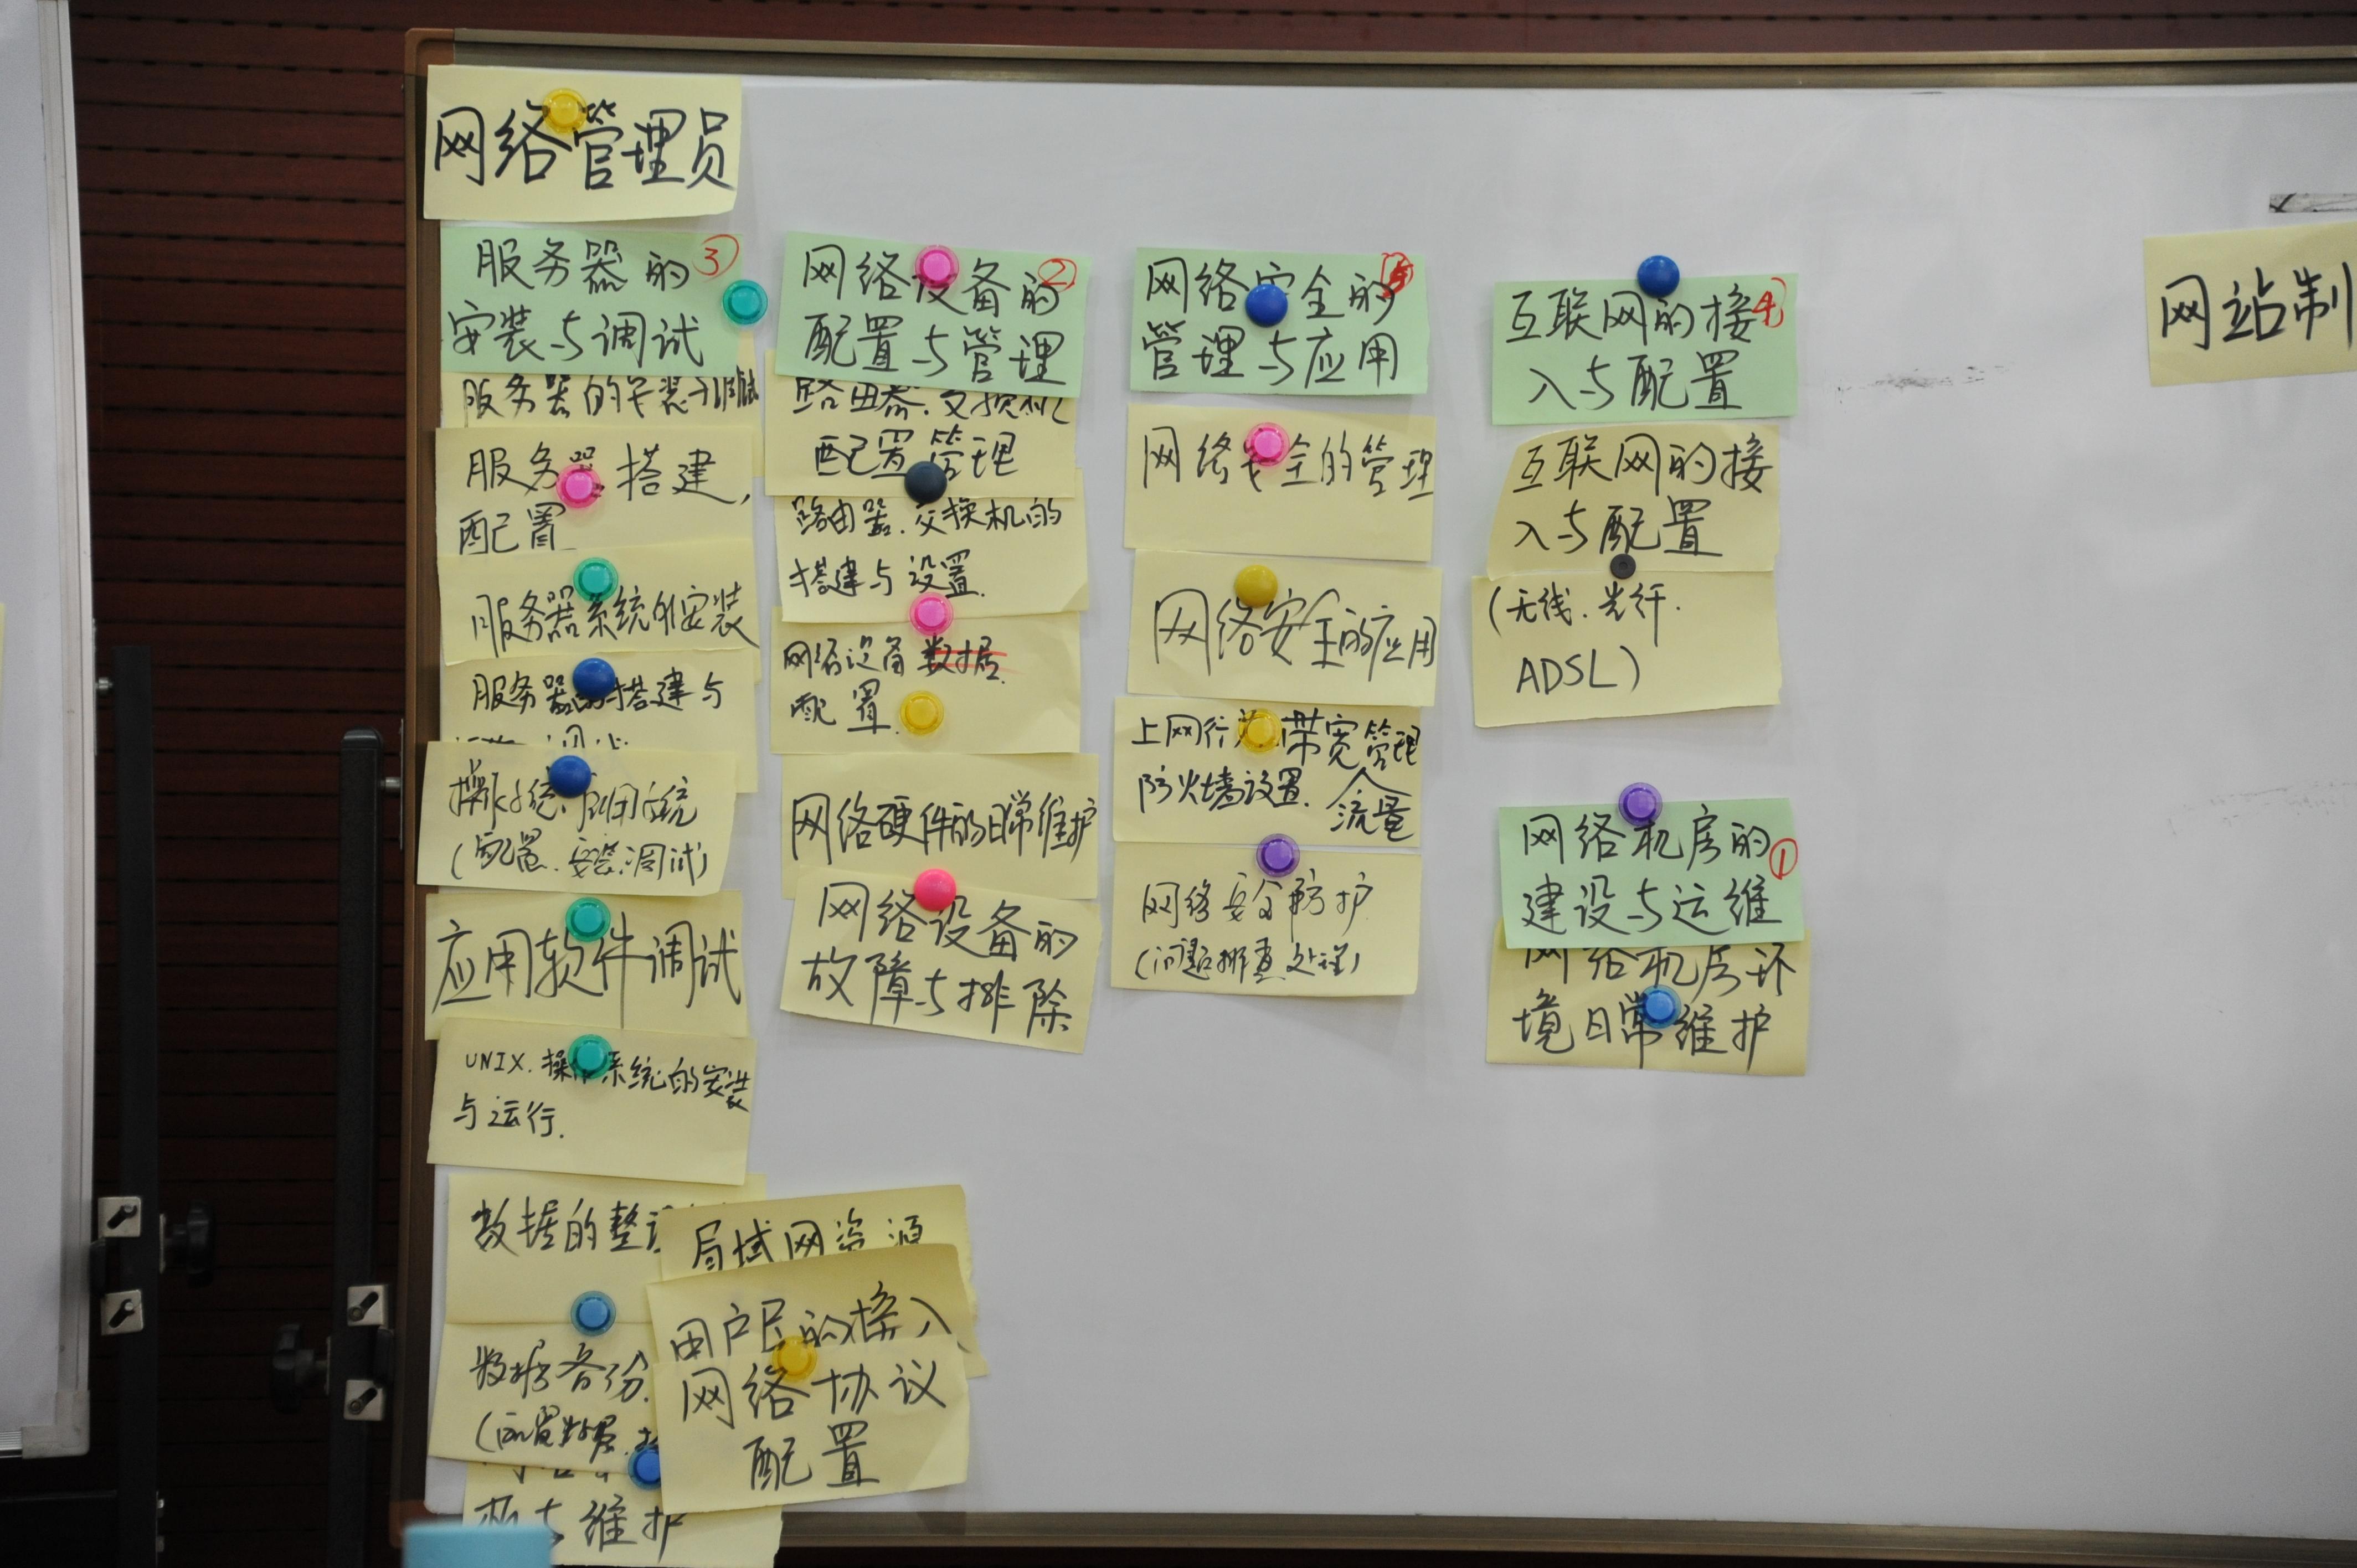 网络管理员
服务器的 ③
安装与调试
服务器的安装与调试
服务器搭建,
配置
服务器系统的安装
服务器的搭建与
应用系统
(配置.安装.调试)
应用软件调试
UNIX.操作系统的安装
与运行.
数据的整
数据备份.
(配置数据.
与维护
局域网资源
用户层的接入
网络协议
配置
网络设备的 ②
配置与管理
路由器.交换机
配置管理
路由器.交换机的
搭建与设置.
网络设备数据
配置.
网络硬件的日常维护
网络设备的
故障与排除
网络安全的
管理与应用
网络安全的管理
网络安全的应用
上网行为.带宽管理
防火墙设置. 流量
网络安全防护
(问题排查处理)
互联网的接 ④
入与配置
互联网的接
入与配置
(无线.光纤.
ADSL)
网络机房的 ①
建设与运维
网络机房环
境日常维护
网站制